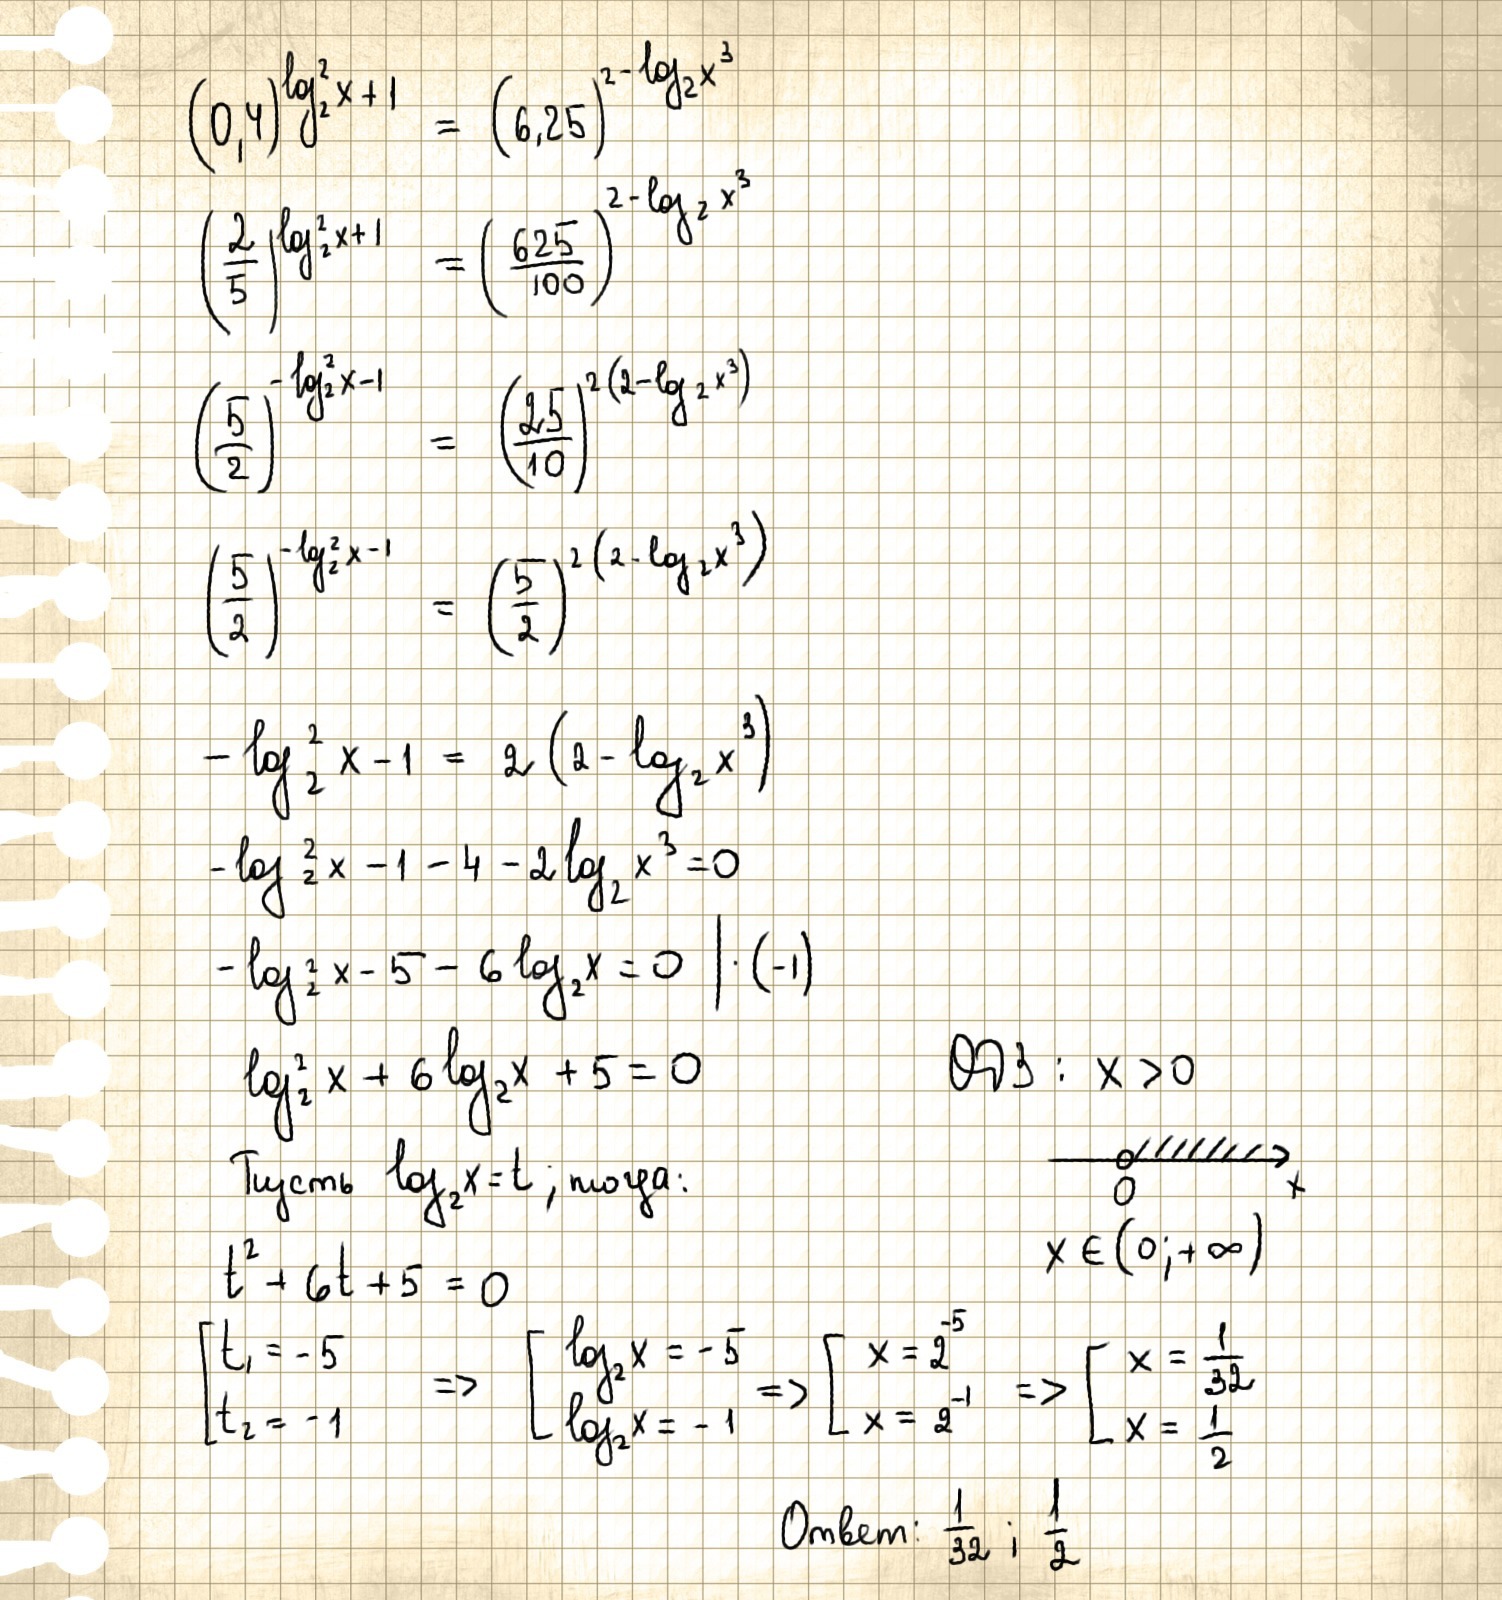 (0,4)^(log₂²x+1) = (6,25)^(2-log₂x³)
(2/5)^(log₂²x+1) = (625/100)^(2-log₂x³)
(5/2)^(-log₂²x-1) = (25/10)^(2(2-log₂x³))
(5/2)^(-log₂²x-1) = (5/2)^(2(2-log₂x³))
-log₂²x-1 = 2(2-log₂x³)
-log₂²x-1-4-2log₂x³=0
-log₂²x-5-6log₂x=0 |·(-1)
log₂²x+6log₂x+5=0
ОДЗ: x>0
0 x
x∈(0;+∞)
Пусть log₂x=t; тогда:
t²+6t+5=0
[t₁=-5 t₂=-1 => [log₂x=-5 log₂x=-1 => [x=2⁻⁵ x=2⁻¹ => [x=1/32 x=1/2
Ответ: 1/32; 1/2